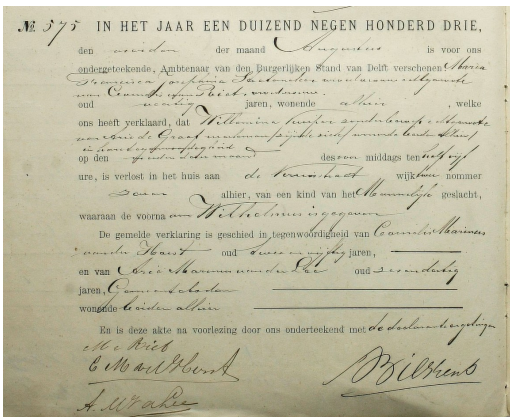 No. 575 IN HET JAAR EEN DUIZEND NEGEN HONDERD DRIE,
den der maand Augustus is voor ons
ondergeteekende, Ambtenaar van den Burgerlijken Stand van Delft verschenen Maria
Francisca Josephina
van Cornelis Riet, vroedvrouw
oud veertig jaren, wonende alhier, welke
ons heeft verklaard, dat Willemina Kuiper zonder beroep, echtgenoote
van Arie de Graaf beiden alhier
op den des voor middags ten half vijf
ure, is verlost in het huis aan de Voorstraat wijk twee nummer
zeven alhier, van een kind van het Mannelijk geslacht,
waaraan de voorna am Wilhelmus is gegeven
De gemelde verklaring is geschied in tegenwoordigheid van Cornelis Marinus
van der Horst oud twee en vijftig jaren,
en van Arie Marinus van der Lee oud zes en dertig
jaren, Gemeentebode
wonende beiden alhier
En is deze akte na voorlezing door ons onderteekend met de declarante en getuigen
C M vd Horst
A. M. vd Lee